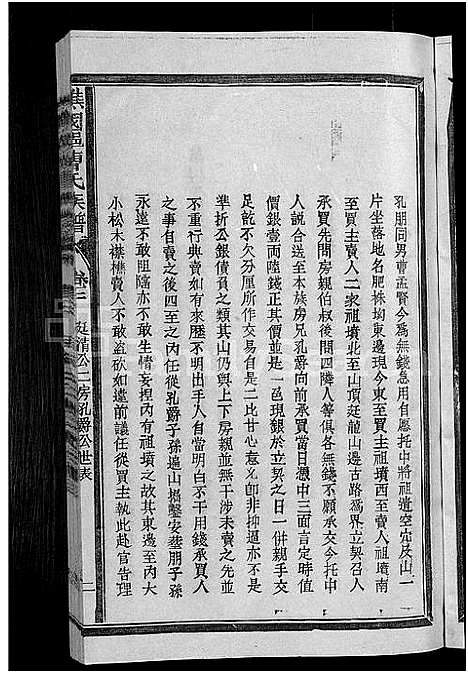 孔朋同男曹孟賢今為無錢急用自愿托中將祖遺空穴及山一
片坐落地名肥株坳東邊現今東至買主祖墳西至賣人祖墳南
至買主賣人二家祖墳北至山頂廷龍山邊古路為界立契召人
承買先問房親伯叔後問四隣人等俱各無錢不願承交今托中
人說合送至本族房兄孔爵向前承買當日憑中三面言定時值
價銀壹兩陸錢正其價並一色現銀於立契之日一併親手交
足訖不欠分厘所作交易自是二比甘心意允即非抑逼亦不是
準折公銀債負之類其山仍與上下房親並無干涉未賣之先並
不重行典賣如有來歷不明出手人自當明白不干用錢承買人
之事自賣之後四至之內任從孔爵子孫遍山掘鑿安葬朋子孫
永遠不敢阻隂亦不敢生情妄捏內有祖墳之故其東邊至內大
小松木襟樵賣人不敢盜砍如違前議任從買主執此赴官告理
譙國邑曹氏族譜
卷三 廷清公二房孔爵公世表
二